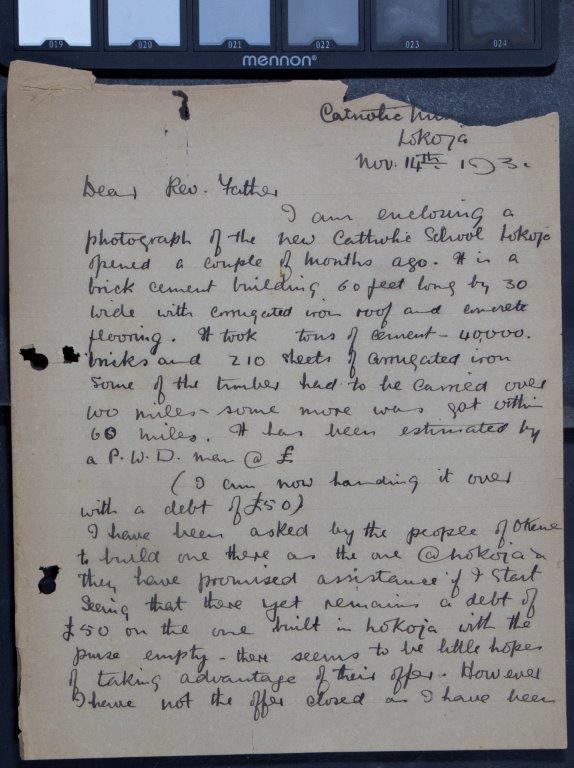 019 020 021 022 023 024
mennon®
Catholic
Lokoja
Nov. 14th 193
Dear Rev. Father
I am enclosing a
photograph of the new Catholic School Lokoja
opened a couple of months ago. It is a
brick cement building 60 feet long by 30
wide with corrugated iron roof and concrete
flooring. It took tons of cement - 40,000.
bricks and 210 sheets of corrugated iron
Some of the timber had to be carried over
100 miles - some more was got within
60 miles. It has been estimated by
a P.W.D. man @ £
(I am now handing it over
with a debt of £50)
I have been asked by the people of Okene
to build one there as the one @ Lokoja &
they have promised assistance if I start
Seeing that there yet remains a debt of
£50 on the one built in Lokoja with the
purse empty - there seems to be little hopes
of taking advantage of their offer. However
I have not the offer closed as I have been